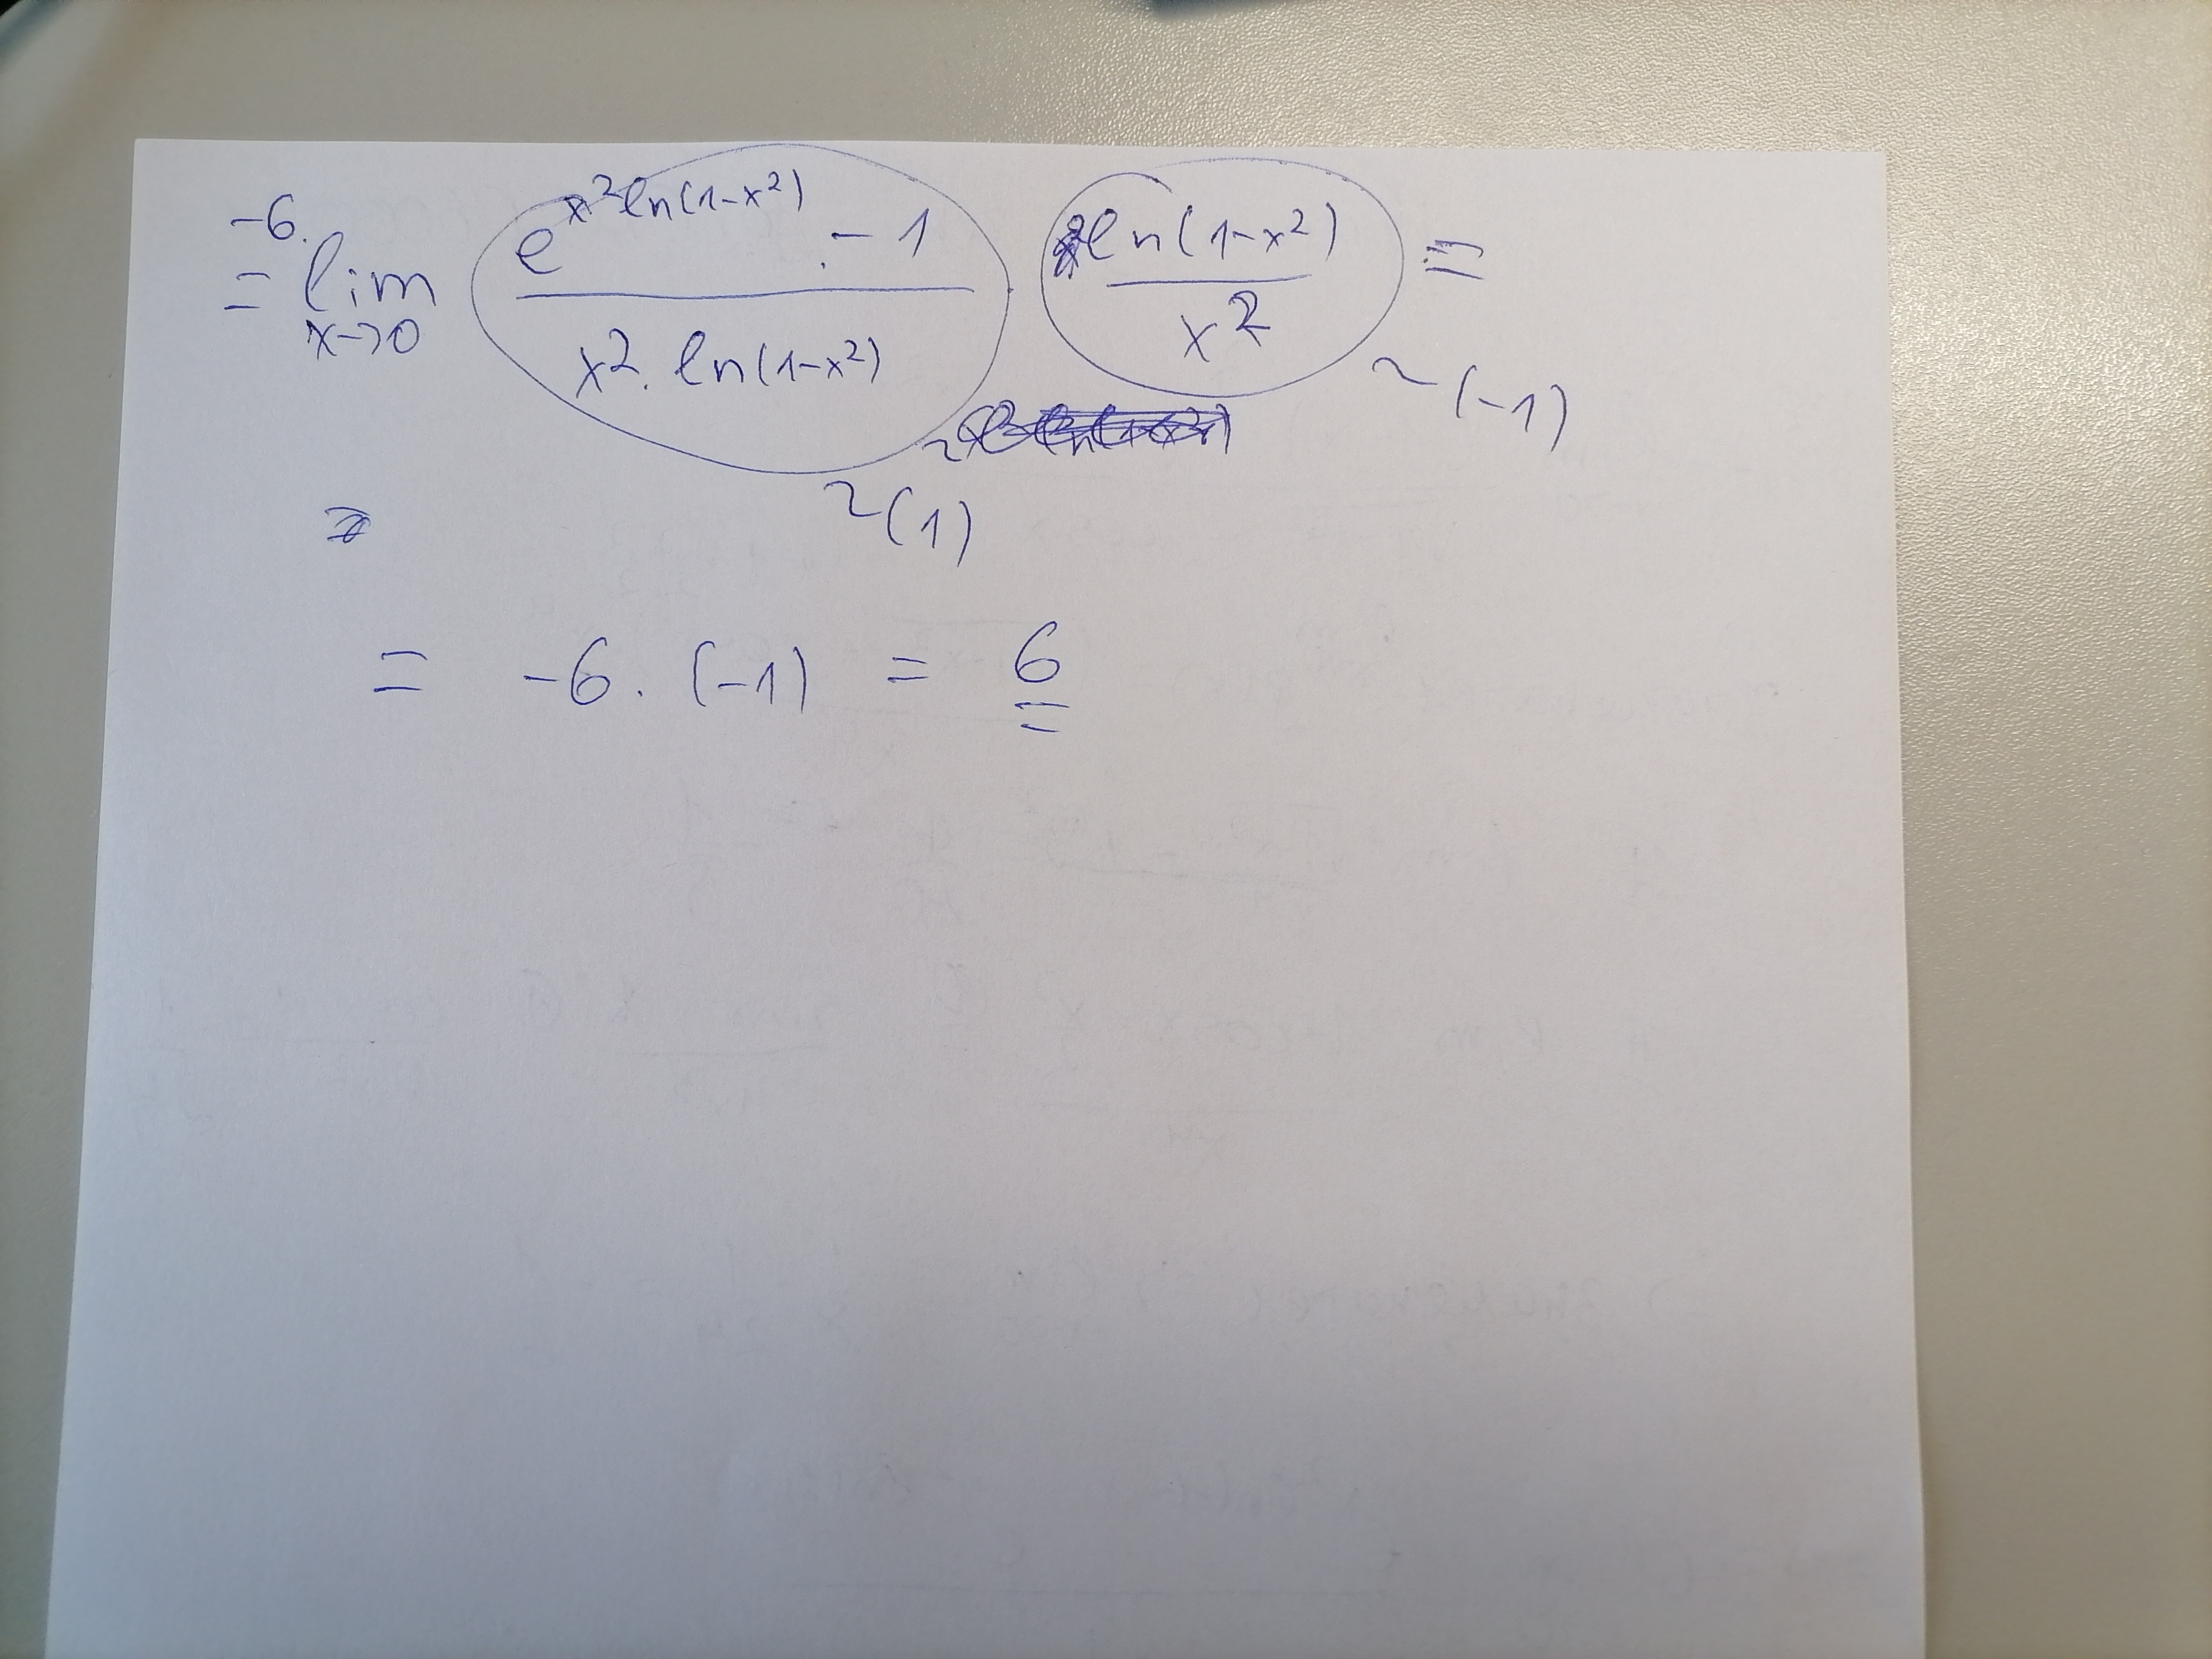 -6.
= lim x->0 (e^(x² ln(1-x²)) - 1) / (x². ln(1-x²)) . ln(1-x²) / x² =
~ (-1)
~ (1)
= -6. (-1) = 6